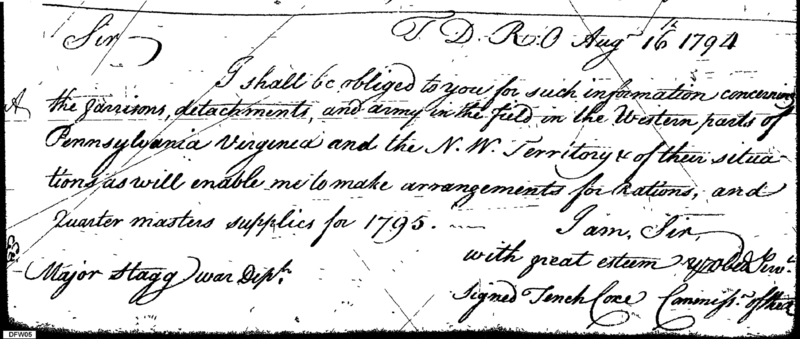 T. D. R. O Augt 16th 1794
Sir
I shall be obliged to you for such information concerning
the garrisons, detachments, and army in the field in the Western parts of
Pennsylvania Virginea and the N. W. Territory & of their situa
tions as will enable me to make arrangements for rations, and
Quarter masters supplies for 1795. —
I am, Sir,
with great esteem yr obed Servt
Major Stagg War Dept.
Signed Tench Coxe Commissr. of the
DFW05